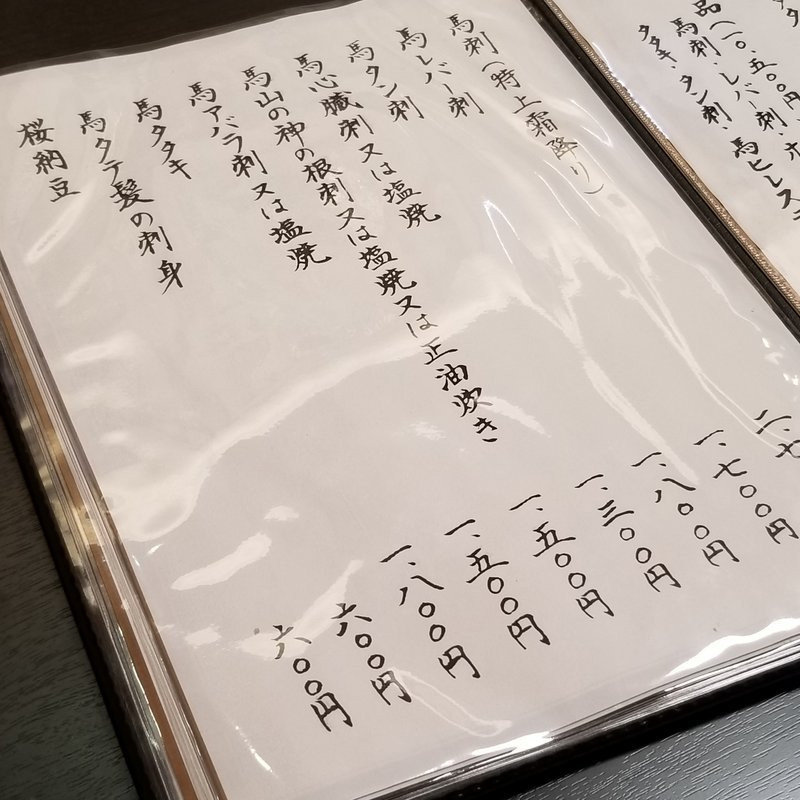 品(一〇、五〇〇円
馬刺・レバー刺・ホ
タタキ・タン刺・馬ヒレス
馬刺(特上霜降り) 二、七〇〇円
馬レバー刺 一、七〇〇円
馬タン刺 一、八〇〇円
馬心臓刺又は塩焼 一、三〇〇円
馬山の神の根刺又は塩焼又は正油炊き 一、五〇〇円
馬アバラ刺又は塩焼 一、五〇〇円
馬タタキ 一、八〇〇円
馬タテ髪の刺身 六〇〇円
桜納豆 六〇〇円